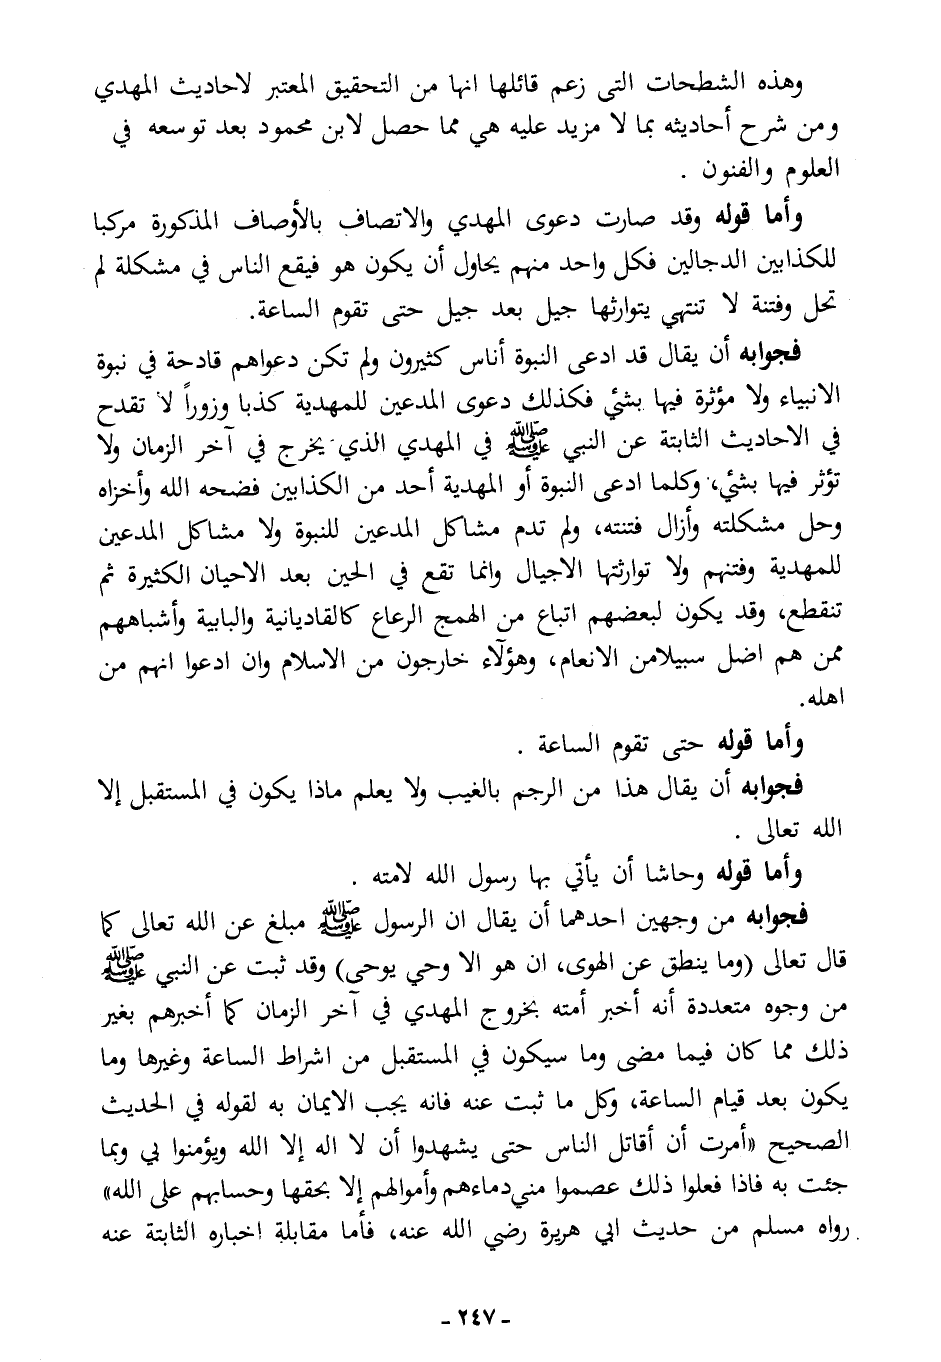 وهذه الشطحات التي زعم قائلها انها من التحقيق المعتبر لاحاديث المهدي
ومن شرح أحاديثه بما لا مزيد عليه هي مما حصل لابن محمود بعد توسعه في
العلوم والفنون .
وأما قوله وقد صارت دعوى المهدي والاتصاف بالأوصاف المذكورة مركبا
للكذابين الدجالين فكل واحد منهم يحاول أن يكون هو فيقع الناس في مشكلة لم
تحل وفتنة لا تنتهي يتوارثها جيل بعد جيل حتى تقوم الساعة.
فجوابه أن يقال قد ادعى النبوة أناس كثيرون ولم تكن دعواهم قادحة في نبوة
الانبياء ولا مؤثرة فيها بشئي فكذلك دعوى المدعين للمهدية كذبا وزوراً لا تقدح
في الاحاديث الثابتة عن النبي ﷺ في المهدي الذي يخرج في آخر الزمان ولا
تؤثر فيها بشئي، وكلما ادعى النبوة أو المهدية أحد من الكذابين فضحه الله وأخزاه
وحل مشكلته وأزال فتنته، ولم تدم مشاكل المدعين للنبوة ولا مشاكل المدعين
للمهدية وفتنهم ولا توارثتها الاجيال وانما تقع في الحين بعد الاحيان الكثيرة ثم
تنقطع، وقد يكون لبعضهم اتباع من الهمج الرعاع كالقاديانية والبابية وأشباههم
ممن هم اضل سبيلامن الانعام، وهؤلآء خارجون من الاسلام وان ادعوا انهم من
اهله.
وأما قوله حتى تقوم الساعة .
فجوابه أن يقال هذا من الرجم بالغيب ولا يعلم ماذا يكون في المستقبل إلا
الله تعالى .
وأما قوله وحاشا أن يأتي بها رسول الله لامته .
فجوابه من وجهين احدهما أن يقال ان الرسول ﷺ مبلغ عن الله تعالى كما
قال تعالى (وما ينطق عن الهوى، ان هو الا وحي يوحى) وقد ثبت عن النبي ﷺ
من وجوه متعددة أنه أخبر أمته بخروج المهدي في آخر الزمان كما أخبرهم بغير
ذلك مما كان فيما مضى وما سيكون في المستقبل من اشراط الساعة وغيرها وما
يكون بعد قيام الساعة، وكل ما ثبت عنه فانه يجب الايمان به لقوله في الحديث
الصحيح «أمرت أن أقاتل الناس حتى يشهدوا أن لا اله إلا الله ويؤمنوا بي وبما
جئت به فاذا فعلوا ذلك عصموا مني دماءهم وأموالهم إلا بحقها وحسابهم على الله»
رواه مسلم من حديث ابي هريرة رضي الله عنه، فأما مقابلة اخباره الثابتة عنه
- ٢٤٧ -